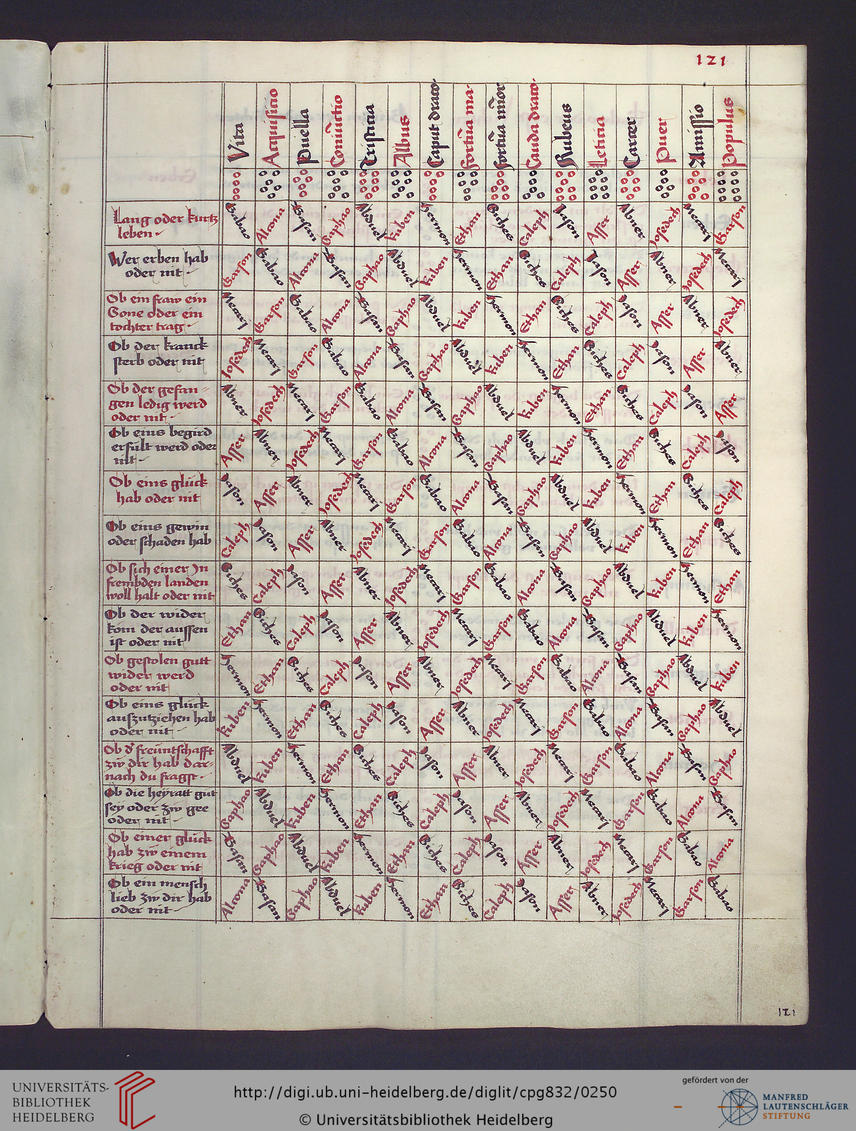 121
Vita Acquisicio Puella Coniūctio Tristicia Albus Caput draco. fortūa ma. fortūa mīor Cauda draco. Rubeus Leticia Carcer Puer Amissio Populus
Lang oder kurtz
leben
Gabao Alcona Basan Gaphao Abduel kiben hermon Ethan Giches Caleph Jason Asser Abner Josedech Mecarj Garson
Wer erben hab
oder nit
Garson Gabao Alcona Basan Gaphao Abduel kiben hermon Ethan Giches Caleph Jason Asser Abner Josedech Mecarj
Ob ein fraw ein
Sone oder ein
tochter trag
Mecarj Garson Gabao Alcona Basan Gaphao Abduel kiben hermon Ethan Giches Caleph Jason Asser Abner Josedech
Ob der kranck
sterb oder nit
Josedech Mecarj Garson Gabao Alcona Basan Gaphao Abduel kiben hermon Ethan Giches Caleph Jason Asser Abner
Ob der gefan-
gen ledig werd
oder nit
Abner Josedech Mecarj Garson Gabao Alcona Basan Gaphao Abduel kiben hermon Ethan Giches Caleph Jason Asser
Ob eins begird
erfult werd oder
nit
Asser Abner Josedech Mecarj Garson Gabao Alcona Basan Gaphao Abduel kiben hermon Ethan Giches Caleph Jason
Ob eins glück
hab oder nit
Jason Asser Abner Josedech Mecarj Garson Gabao Alcona Basan Gaphao Abduel kiben hermon Ethan Giches Caleph
Ob eins gewin
oder schaden hab
Caleph Jason Asser Abner Josedech Mecarj Garson Gabao Alcona Basan Gaphao Abduel kiben hermon Ethan Giches
Ob sich einer Jn
frembden landen
woll halt oder nit
Giches Caleph Jason Asser Abner Josedech Mecarj Garson Gabao Alcona Basan Gaphao Abduel kiben hermon Ethan
Ob der wider
kom der aussen
ist oder nit
Ethan Giches Caleph Jason Asser Abner Josedech Mecarj Garson Gabao Alcona Basan Gaphao Abduel kiben hermon
Ob gestolen gutt
wider werd
oder nit
hermon Ethan Giches Caleph Jason Asser Abner Josedech Mecarj Garson Gabao Alcona Basan Gaphao Abduel kiben
Ob eins glück
auszuziehen hab
oder nit
kiben hermon Ethan Giches Caleph Jason Asser Abner Josedech Mecarj Garson Gabao Alcona Basan Gaphao Abduel
Ob d' freüntschafft
zw dir hab dar-
nach du fragst
Abduel kiben hermon Ethan Giches Caleph Jason Asser Abner Josedech Mecarj Garson Gabao Alcona Basan Gaphao
Ob die heyratt gut
sey oder zw gee
oder nit
Gaphao Abduel kiben hermon Ethan Giches Caleph Jason Asser Abner Josedech Mecarj Garson Gabao Alcona Basan
Ob einer glück
hab zw einem
krieg oder nit
Basan Gaphao Abduel kiben hermon Ethan Giches Caleph Jason Asser Abner Josedech Mecarj Garson Gabao Alcona
Ob ein mensch
lieb zw dir hab
oder nit
Alcona Basan Gaphao Abduel kiben hermon Ethan Giches Caleph Jason Asser Abner Josedech Mecarj Garson Gabao
121
UNIVERSITÄTS-
BIBLIOTHEK
HEIDELBERG
http://digi.ub.uni-heidelberg.de/diglit/cpg832/0250
© Universitätsbibliothek Heidelberg
gefördert von der
MANFRED
LAUTENSCHLÄGER
STIFTUNG